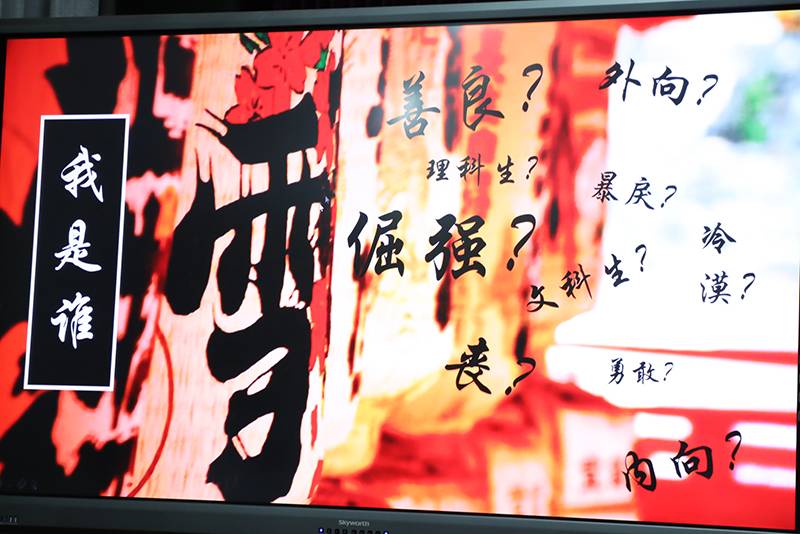 我是谁
雪
善良？
外向？
理科生？
暴戾？
倔强？
冷漠？
文科生？
丧？
勇敢？
内向？
Skyworth